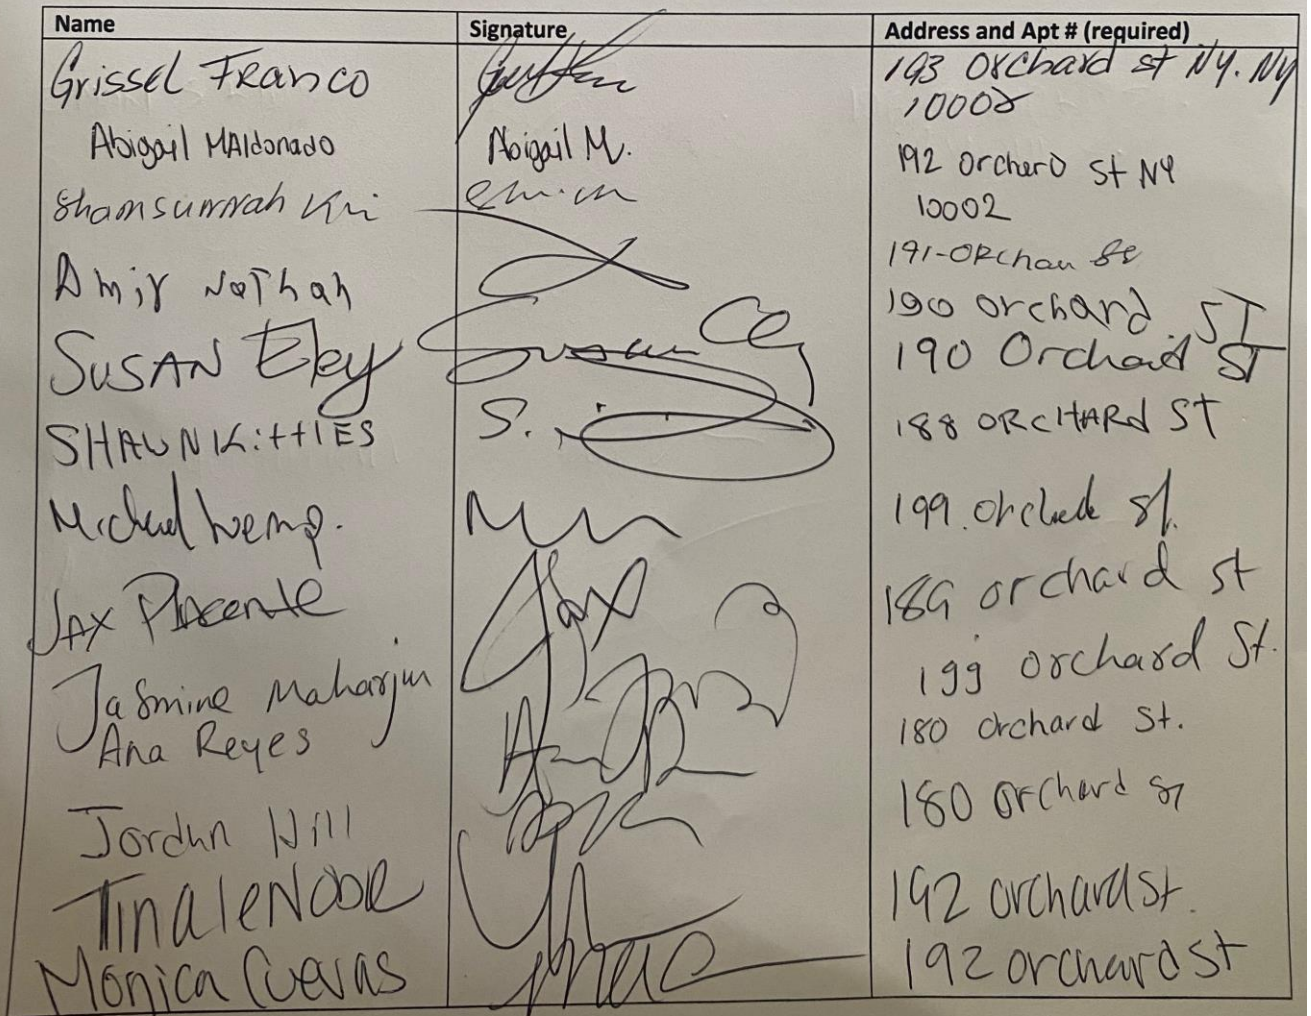 Name Signature Address and Apt # (required)
Grissel Franco 193 Orchard st NY. NY
10002
Abigail Maldonado Abigail M. 192 Orchard St NY
10002
Shamsunnah 191-
Amir Nathan 190 Orchard ST
SUSAN Eley Susan 190 Orchard ST
SHAWN KittlES S. 188 ORCHARD ST
Michael 199. St.
JAX Placente Jax 189 orchard st
Jasmine Maharjan 199 orchard St.
Ana Reyes 180 orchard St.
Jordan Hill 180 orchard st
Tina leNoble 192 orchard st.
Monica Cuevas 192 orchard st